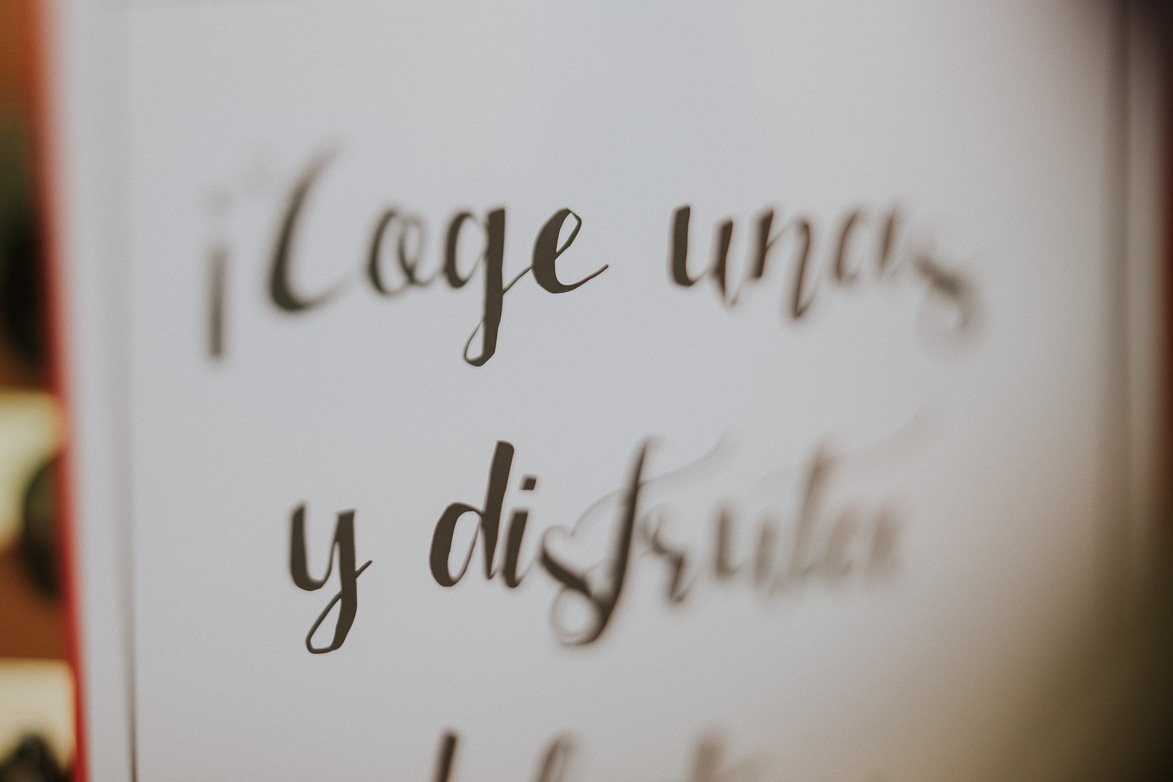 ¡Coge unas
y disfruta